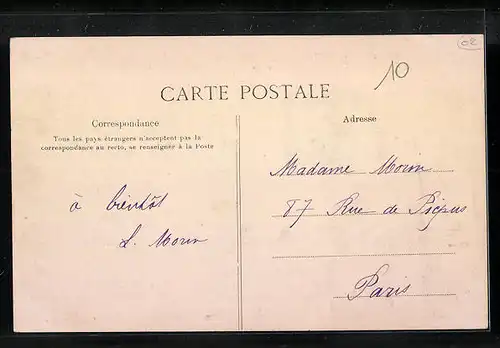 02
10
CARTE POSTALE
Correspondance
Tous les pays étrangers n'acceptent pas la
correspondance au recto, se renseigner à la Poste
à bientôt
L. Morin
Adresse
Madame Morin
87 Rue de Picpus
Paris